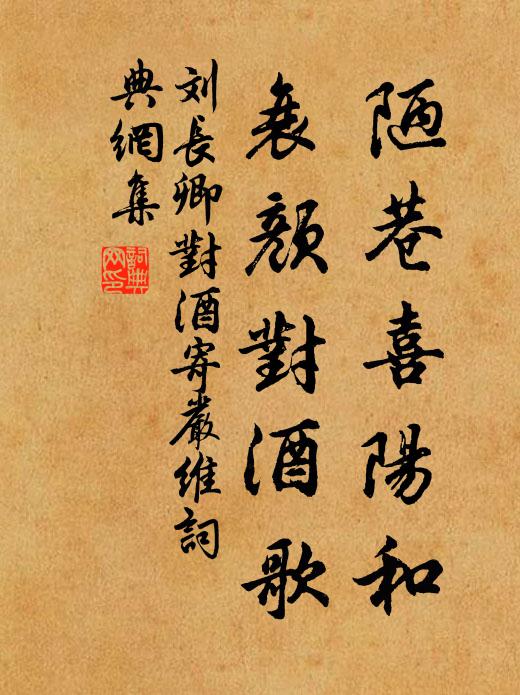 陋巷喜陽和
衰顏對酒歌
刘長卿對酒寄嚴維詞
典網集
詞典網印